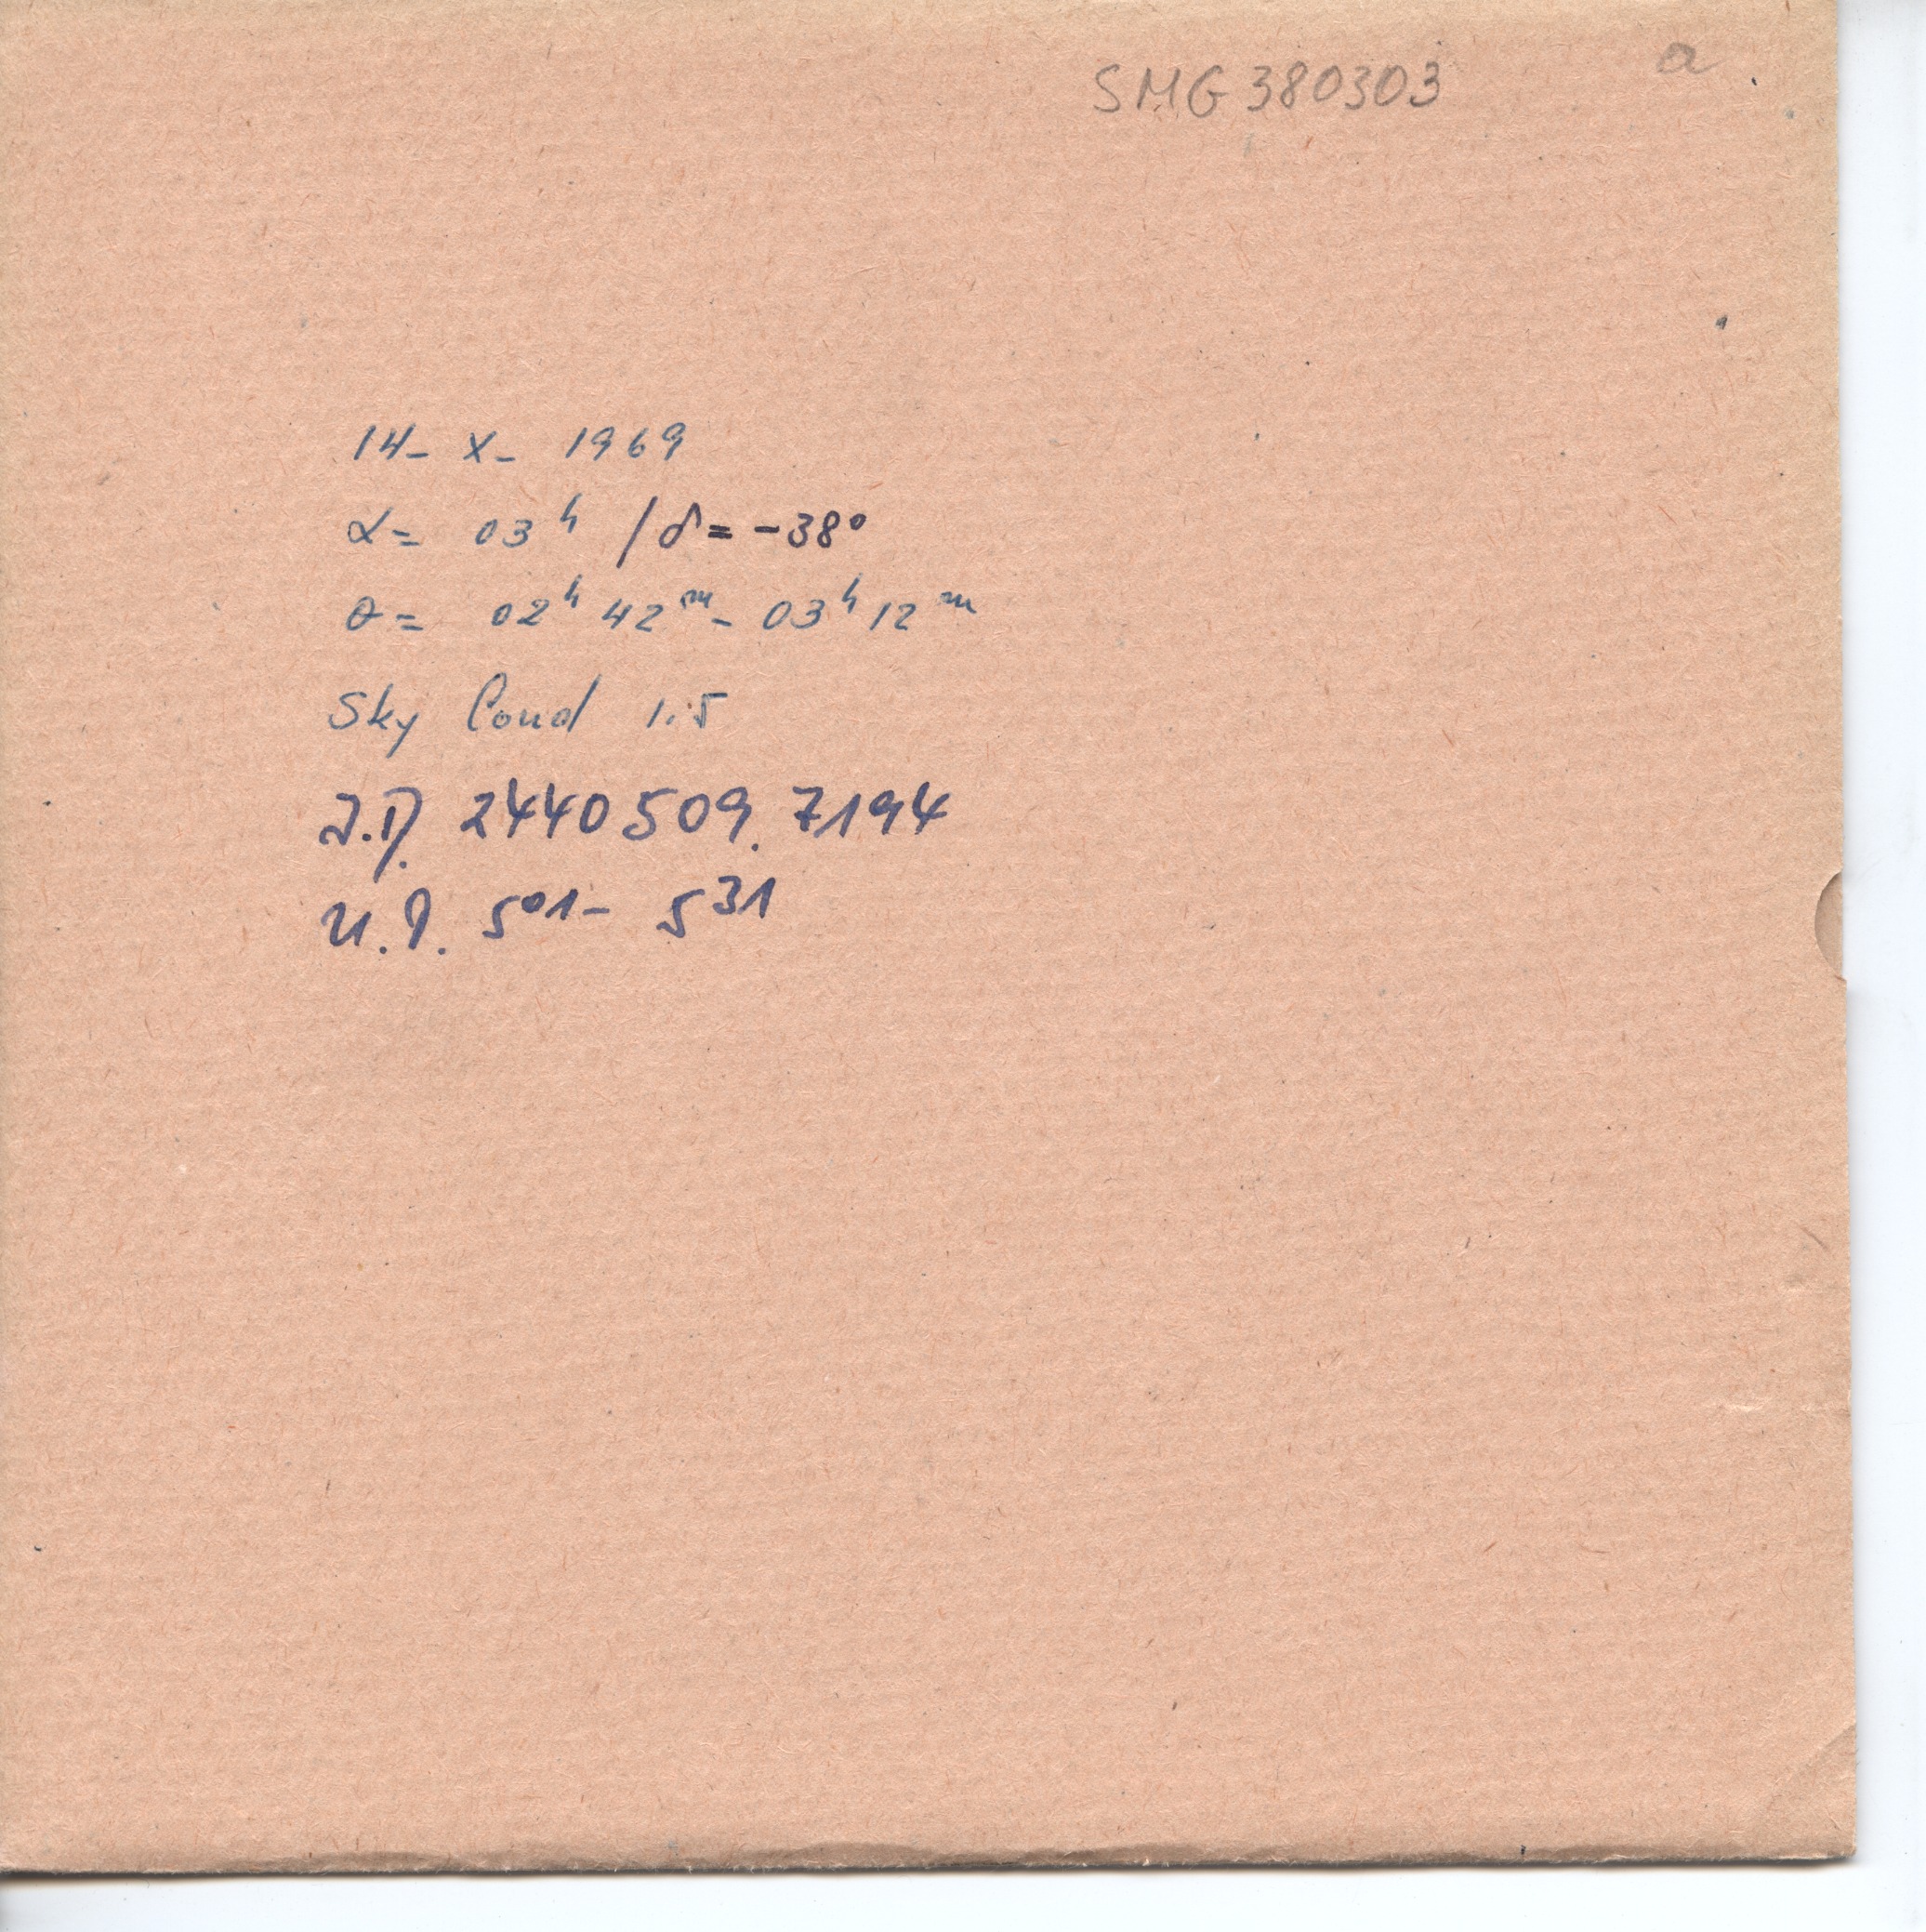 SMG 380303 a
14- X- 1969
α= 03ʰ /δ= -38°
θ= 02ʰ 42ᵐ- 03ʰ 12ᵐ
Sky Cond 1.5
J.D. 2440509.7194
U.T. 5⁰¹- 5³¹